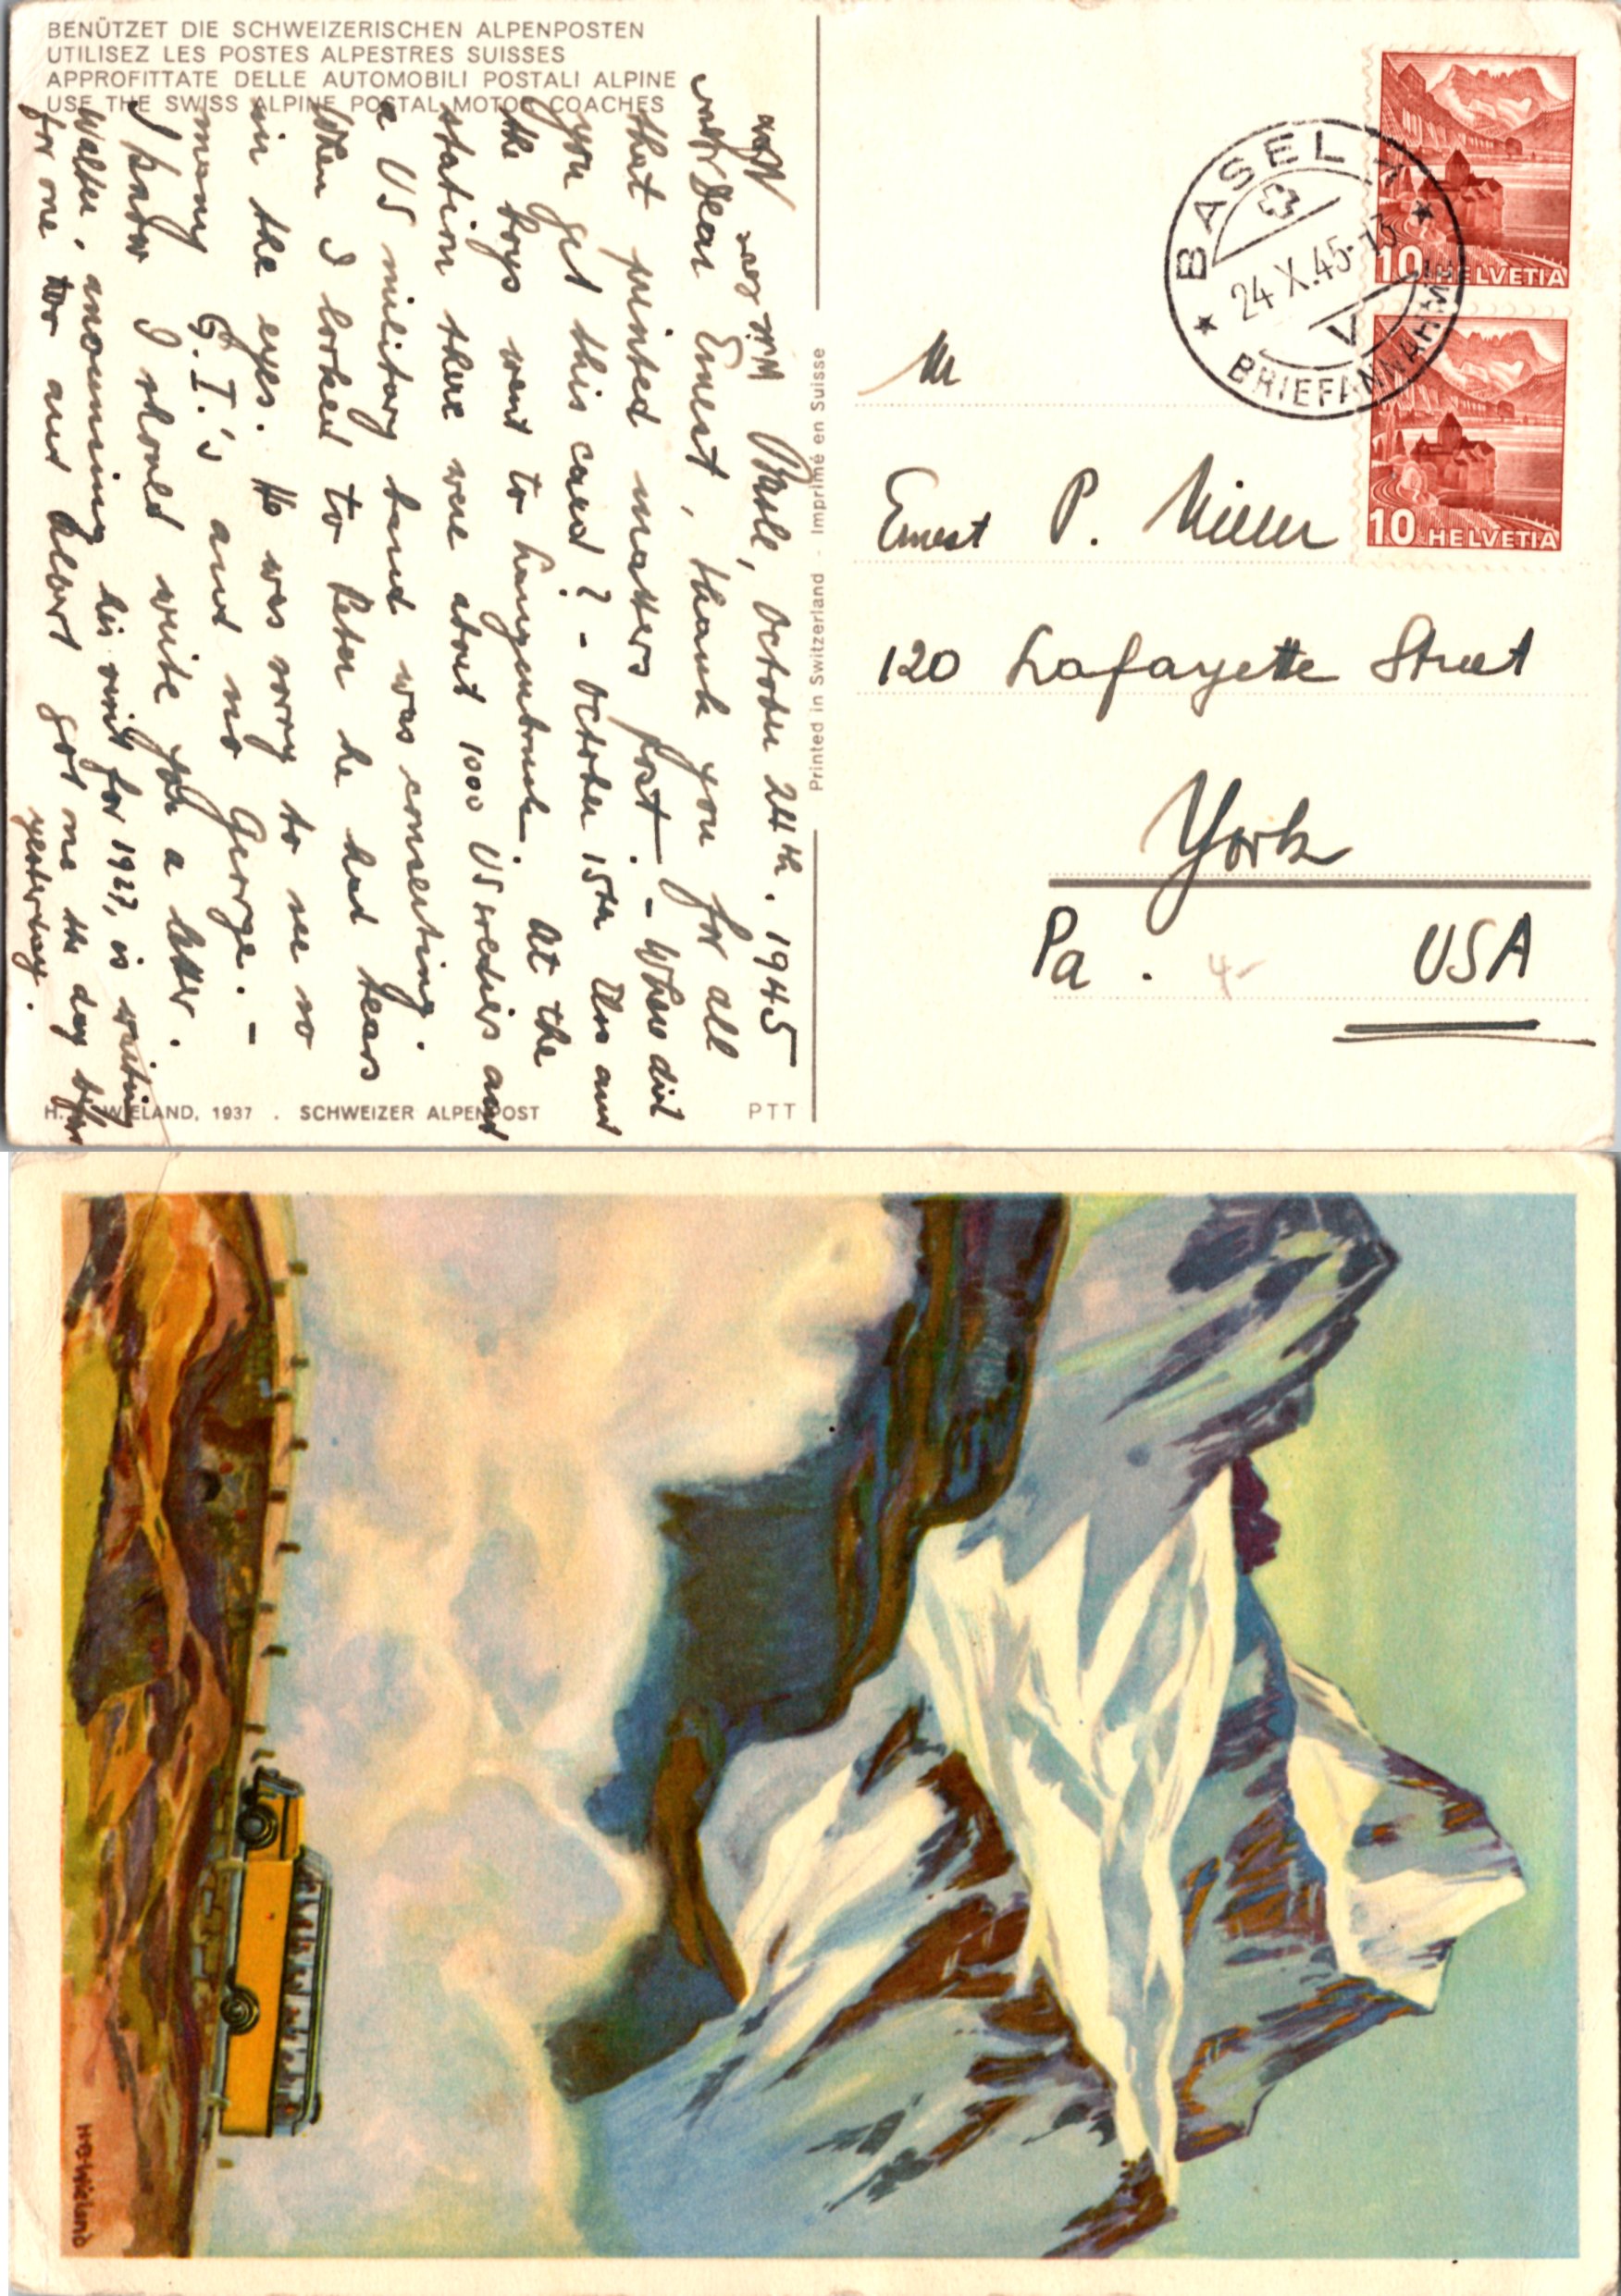 BENÜTZET DIE SCHWEIZERISCHEN ALPENPOSTEN
UTILISEZ LES POSTES ALPESTRES SUISSES
APPROFITTATE DELLE AUTOMOBILI POSTALI ALPINE
USE THE SWISS ALPINE POSTAL MOTOR COACHES
Basle, October 24th. 1945
Dear Ernest, thank you for all
that printed matters post. - When did
you get this card? - October 15th Urs and
the boys went to Langenbruck. At the
station there were about 1000 US soldiers and
a US military band was concerting.
When I looked to Peter he had tears
in the eyes. He was sorry to see so
many G.I.'s and no George. -
I know I should write you a letter.
Walter, announcing his visit for 1927, is waiting
for one too and Albert got one the day before
yesterday.
H. B. WIELAND, 1937 . SCHWEIZER ALPENPOST
PTT
Printed in Switzerland - Imprimé en Suisse
BASEL
24.X.45-13
V
BRIEFANNAHME
10 HELVETIA
10 HELVETIA
Mr
Ernest P. Miller
120 Lafayette Street
York
Pa. USA
4-
H.B. Wieland